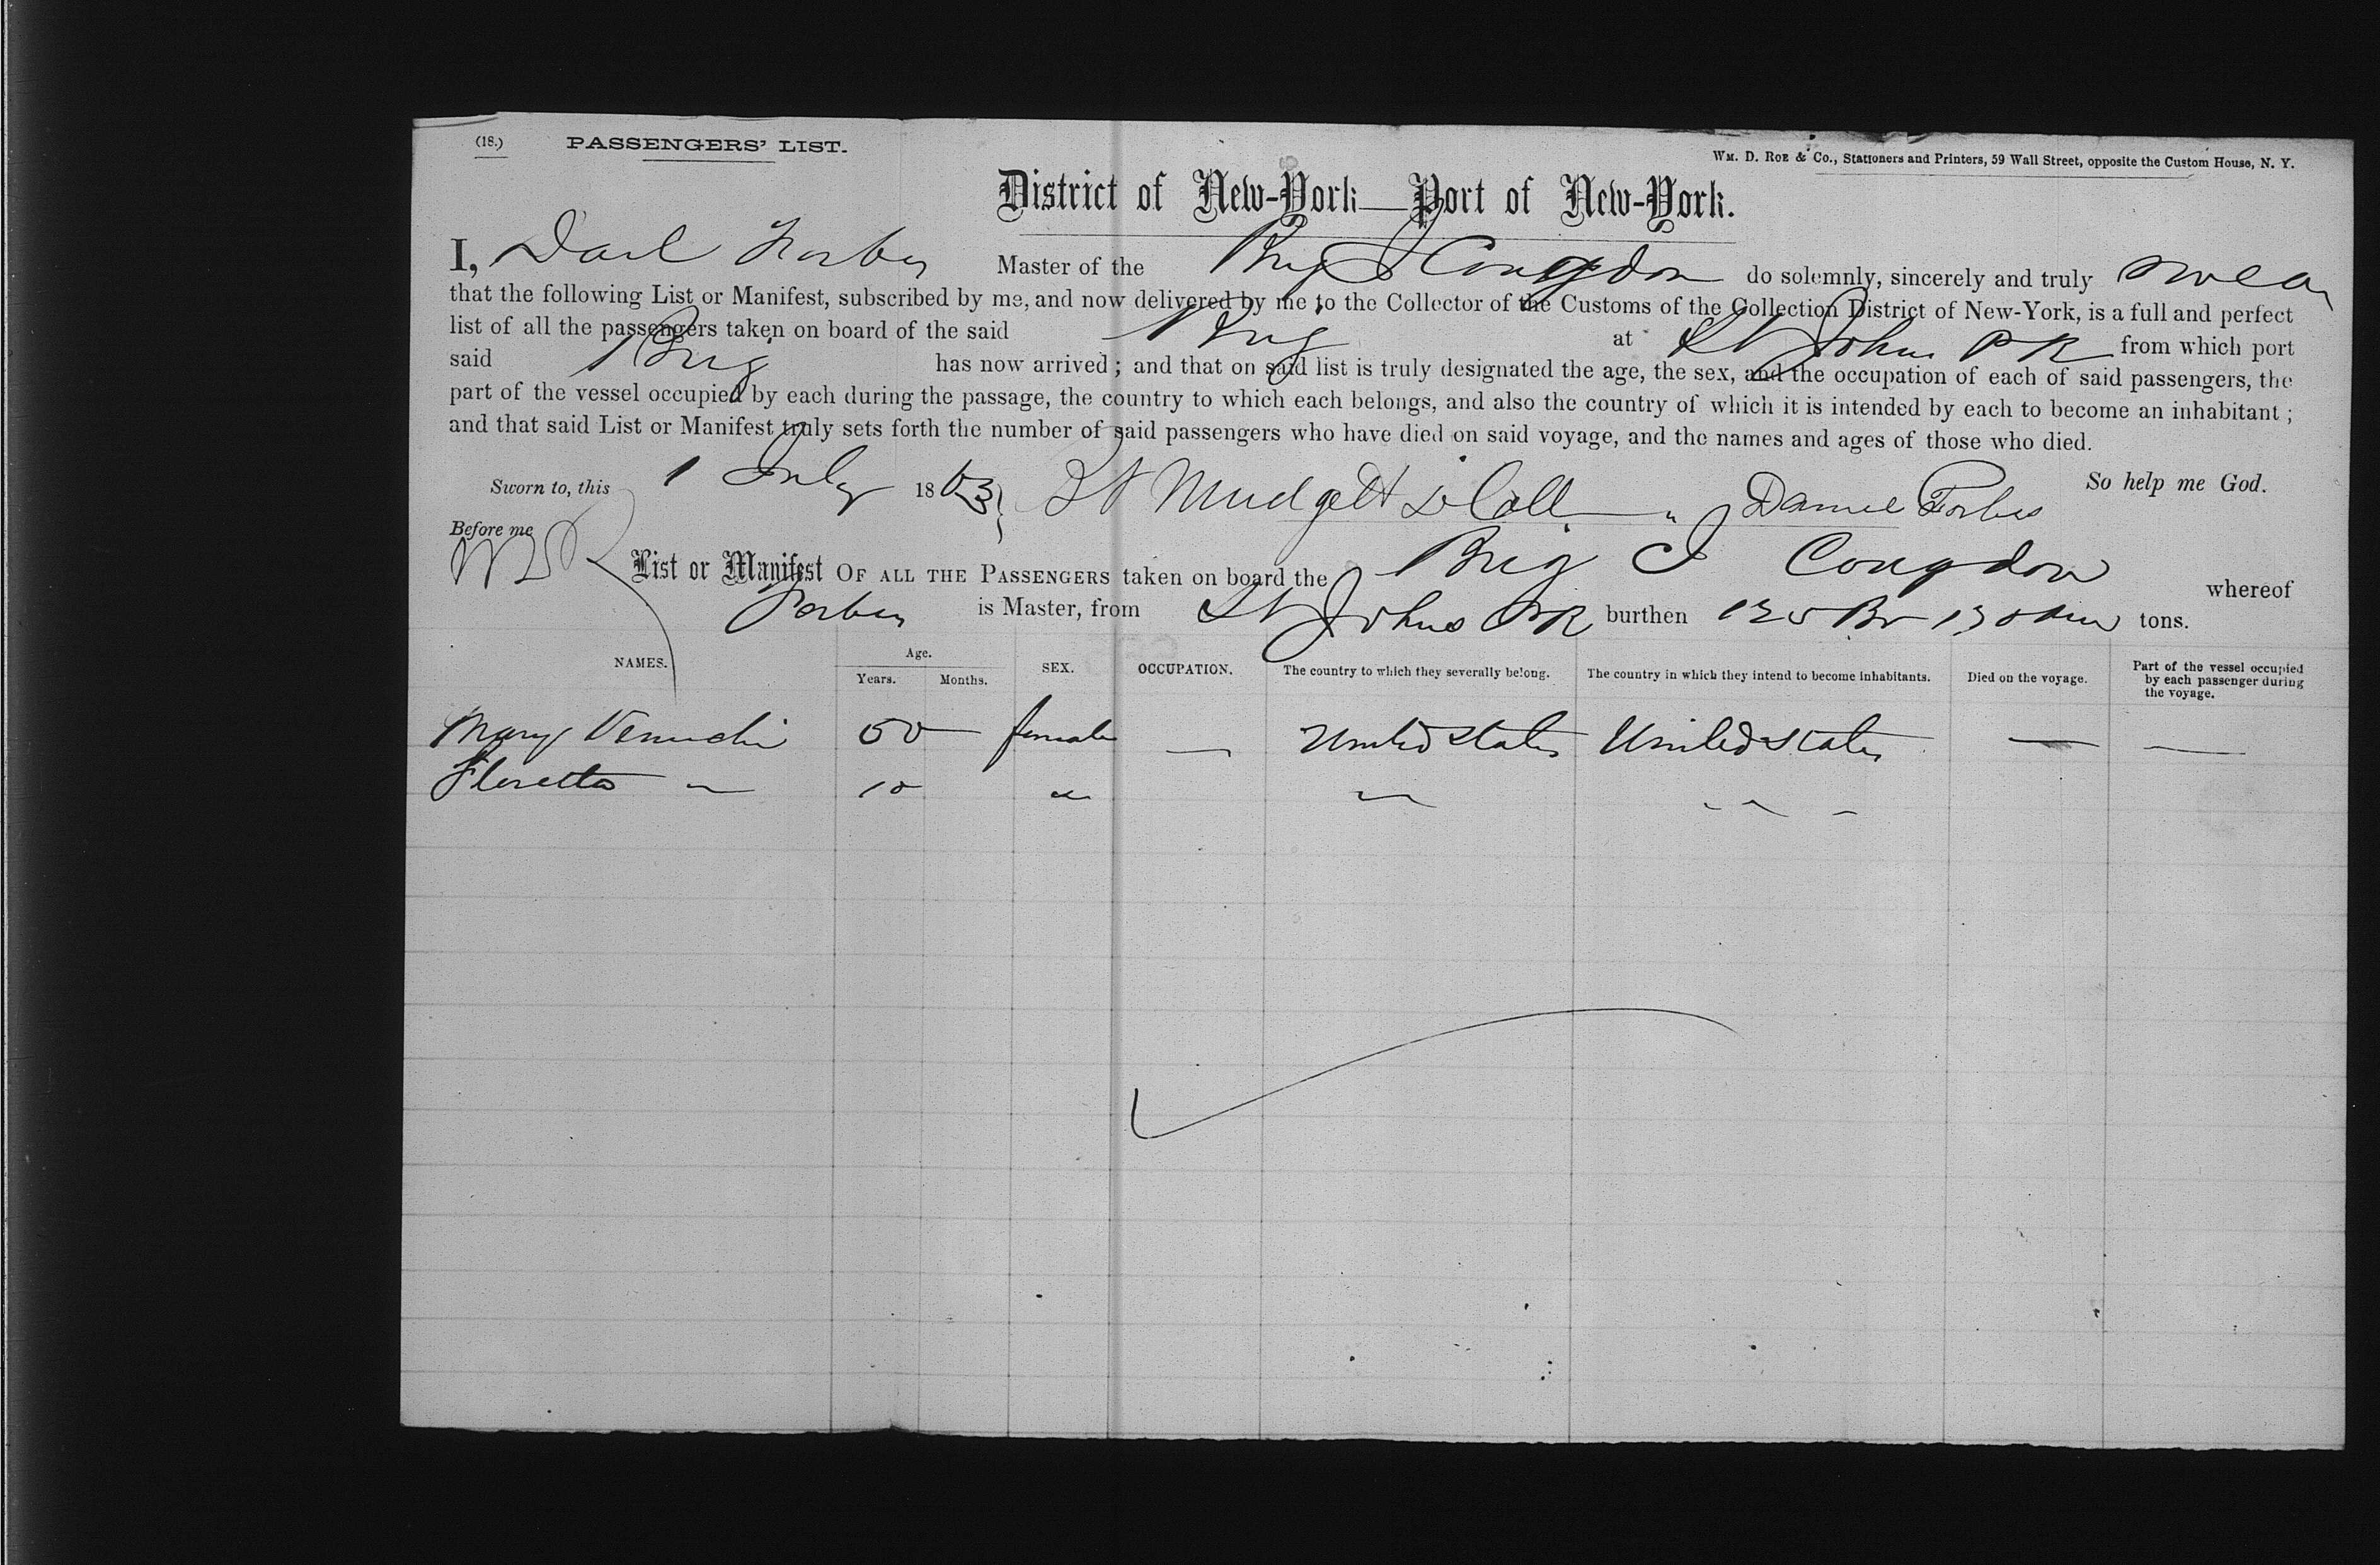 (18.) PASSENGERS' LIST.
WM. D. ROE & Co., Stationers and Printers, 59 Wall Street, opposite the Custom House, N. Y.
District of New-York—Port of New-York.
I, Danl Forbes Master of the Brig J Congdon do solemnly, sincerely and truly swear
that the following List or Manifest, subscribed by me, and now delivered by me to the Collector of the Customs of the Collection District of New-York, is a full and perfect
list of all the passengers taken on board of the said Brig at St Johns P R from which port
said Brig has now arrived; and that on said list is truly designated the age, the sex, and the occupation of each of said passengers, the
part of the vessel occupied by each during the passage, the country to which each belongs, and also the country of which it is intended by each to become an inhabitant;
and that said List or Manifest truly sets forth the number of said passengers who have died on said voyage, and the names and ages of those who died.
Sworn to, this 1 July 1863 Mudgett Daniel Forbes So help me God.
Before me
List or Manifest OF ALL THE PASSENGERS taken on board the Brig J Congdon whereof
Forbes is Master, from St Johns P R burthen tons.
NAMES. Age. Years. Months. SEX. OCCUPATION. The country to which they severally belong. The country in which they intend to become inhabitants. Died on the voyage. Part of the vessel occupied by each passenger during the voyage.
Mary 50 female — United States United States — —
Floretta " 10 " " " "